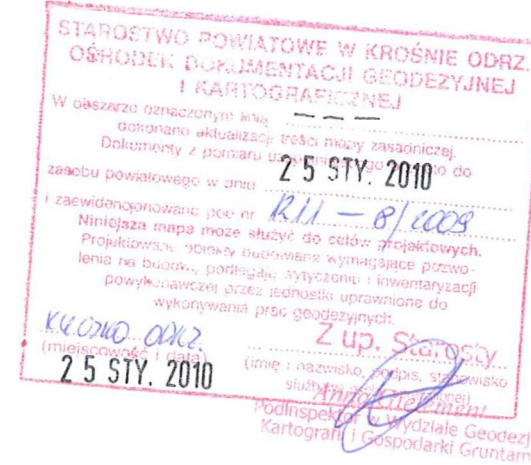 STAROSTWO POWIATOWE W KROŚNIE ODRZ.
OŚRODEK DOKUMENTACJI GEODEZYJNEJ
I KARTOGRAFICZNEJ
W obszarze oznaczonym linią — — —
dokonano aktualizacji treści mapy zasadniczej.
Dokumenty z pomiaru do
zasobu powiatowego w dniu 25 STY. 2010
i zaewidencjonowano pod nr — 8/2009
Niniejsza mapa może służyć do celów projektowych.
Projektowane obiekty budowlane wymagające pozwo-
lenia na budowę, podlegają wytyczeniu i inwentaryzacji
powykonawczej przez jednostki uprawnione do
wykonywania prac geodezyjnych.
ODRZ.
(miejscowość i data)
25 STY. 2010
Z up. Starosty
(imię i nazwisko, podpis, stanowisko
Anna
Podinspektor w Wydziale Geodezji
Kartografii i Gospodarki Gruntami